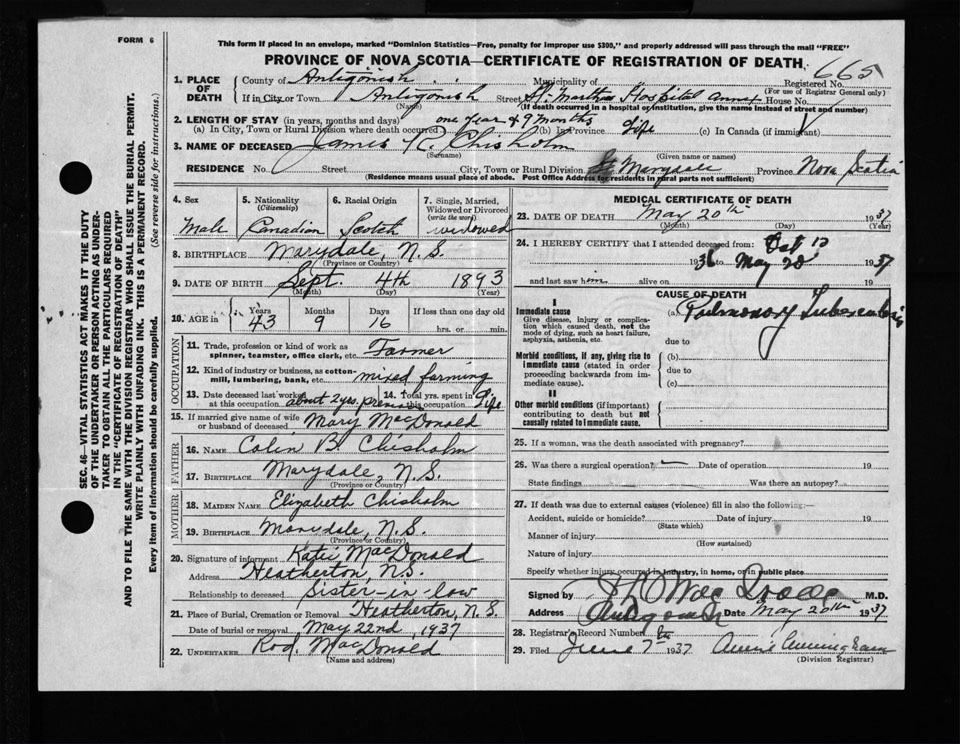 FORM 6
This form if placed in an envelope, marked "Dominion Statistics—Free, penalty for improper use $300," and properly addressed will pass through the mail "FREE"
PROVINCE OF NOVA SCOTIA—CERTIFICATE OF REGISTRATION OF DEATH.
665
1. PLACE OF DEATH County of Antigonish Municipality of Registered No.
(For use of Registrar General only)
If in City or Town Antigonish Street St. Martha's Hospital Annex House No.
(Name) (If death occurred in a hospital or institution, give the name instead of street and number)
2. LENGTH OF STAY (in years, months and days)
(a) In City, Town or Rural Division where death occurred one year & 9 months (b) In Province Life (c) In Canada (if immigrant)
3. NAME OF DECEASED James Chisholm
(Surname) (Given name or names)
RESIDENCE No. Street City, Town or Rural Division Marydale Province Nova Scotia
(Residence means usual place of abode. Post Office Address for residents in rural parts not sufficient)
4. Sex Male
5. Nationality (Citizenship) Canadian
6. Racial Origin Scotch
7. Single, Married, Widowed or Divorced (write the word) widowed
8. BIRTHPLACE Marydale, N.S.
(Province or Country)
9. DATE OF BIRTH Sept. 4th 1893
(Month) (Day) (Year)
10. AGE in Years 43 Months 9 Days 16 If less than one day old hrs. or min.
OCCUPATION
11. Trade, profession or kind of work as spinner, teamster, office clerk, etc. Farmer
12. Kind of industry or business, as cotton-mill, lumbering, bank, etc. mixed farming
13. Date deceased last worked at this occupation about 2 yrs.
14. Total yrs. spent in this occupation Life
15. If married give name of wife or husband of deceased Mary MacDonald
FATHER
16. NAME Colin B. Chisholm
17. BIRTHPLACE Marydale, N.S.
(Province or Country)
MOTHER
18. MAIDEN NAME Elizabeth Chisholm
19. BIRTHPLACE Marydale, N.S.
(Province or Country)
20. Signature of informant Katie MacDonald
Address Heatherton, N.S.
Relationship to deceased Sister-in-law
21. Place of Burial, Cremation or Removal Heatherton, N.S.
Date of burial or removal May 22nd, 1937
22. UNDERTAKER Rod. MacDonald
(Name and address)
MEDICAL CERTIFICATE OF DEATH
23. DATE OF DEATH May 20th 1937
(Month) (Day) (Year)
24. I HEREBY CERTIFY that I attended deceased from:
1936 to May 20 1937
and last saw him alive on 19
CAUSE OF DEATH
I
Immediate cause (a) Pulmonary Tuberculosis
Give disease, injury or complication which caused death, not the mode of dying, such as heart failure, asphyxia, asthenia, etc.
due to
Morbid conditions, if any, giving rise to immediate cause (stated in order proceeding backwards from immediate cause).
(b)
due to
(c)
II
Other morbid conditions (if important) contributing to death but not causally related to immediate cause.
25. If a woman, was the death associated with pregnancy?
26. Was there a surgical operation? — Date of operation 19
State findings Was there an autopsy?
27. If death was due to external causes (violence) fill in also the following:—
Accident, suicide or homicide? Date of injury 19
(State which)
Manner of injury
(How sustained)
Nature of injury
Specify whether injury occurred in industry, in home, or in public place
Signed by M.D.
Address Antigonish Date May 20th 1937
28. Registrar's Record Number
29. Filed June 7th 1937 Annie Cunningham
(Division Registrar)
SEC. 46—VITAL STATISTICS ACT MAKES IT THE DUTY OF THE UNDERTAKER OR PERSON ACTING AS UNDERTAKER TO OBTAIN ALL THE PARTICULARS REQUIRED IN THE "CERTIFICATE OF REGISTRATION OF DEATH" AND TO FILE THE SAME WITH THE DIVISION REGISTRAR WHO SHALL ISSUE THE BURIAL PERMIT.
WRITE PLAINLY WITH UNFADING INK. THIS IS A PERMANENT RECORD.
Every item of information should be carefully supplied. (See reverse side for instructions.)